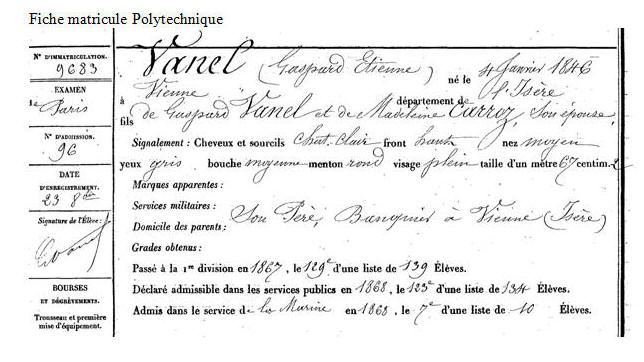 Fiche matricule Polytechnique
N° D'IMMATRICULATION.
9683
EXAMEN
Paris
N° D'ADMISSION.
96
DATE
D'ENREGISTREMENT.
23 8bre
Signature de l'Élève:
GVanel
BOURSES
ET DÉGRÈVEMENTS.
Trousseau et première
mise d'équipement.
Vanel (Gaspard Etienne) né le 4 Janvier 1846
à Vienne département de l'Isère
fils de Gaspard Vanel et de Madeleine Carroz, son épouse,
Signalement: Cheveux et sourcils chât. clair front haut nez moyen
yeux gris bouche moyenne menton rond visage plein taille d'un mètre 67 centim.
Marques apparentes:
Services militaires:
Domicile des parents: Son Père, Banquier à Vienne (Isère)
Grades obtenus:
Passé à la 1re division en 1867, le 129e d'une liste de 139 Élèves.
Déclaré admissible dans les services publics en 1868, le 123e d'une liste de 134 Élèves.
Admis dans le service de la Marine en 1868, le 7e d'une liste de 10 Élèves.